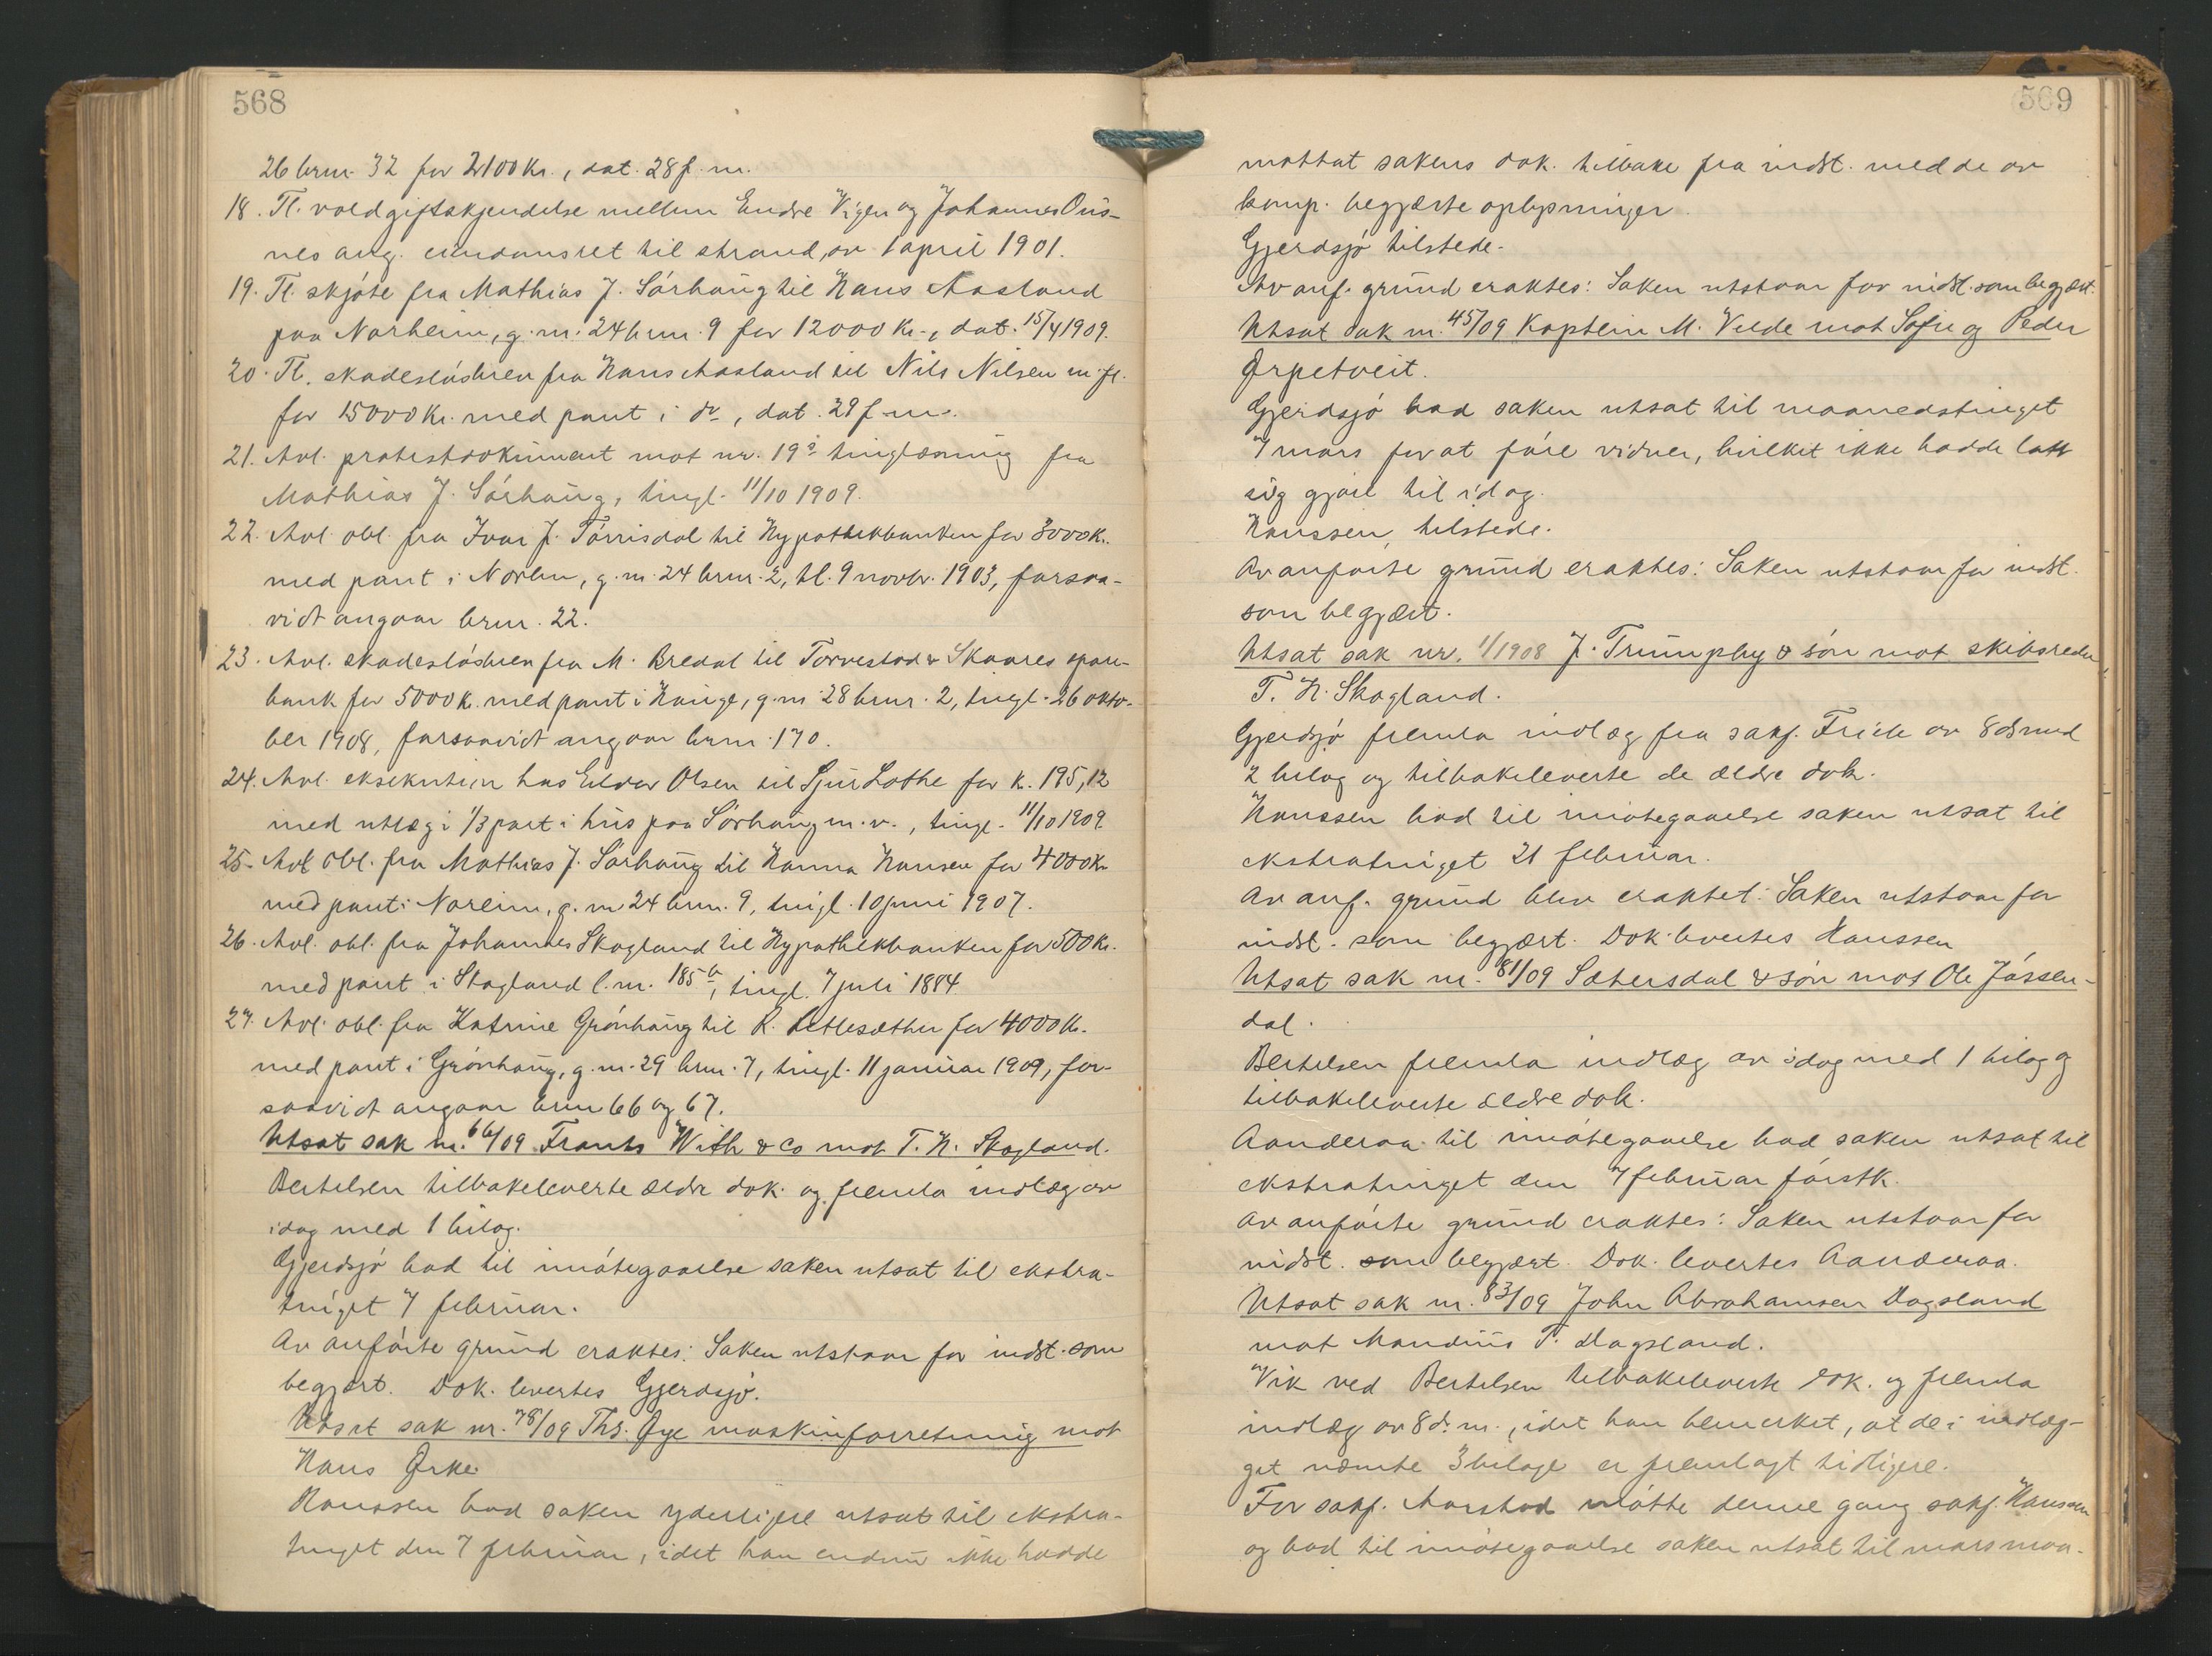 568
26 brnr. 32 for 2100 Kr., dat. 28 f. m.
18. Tl. voldgiftskjendelse mellem Endre Vigen og Johannes Ons-
nes ang. eiendomsret til strand, av 1 april 1901.
19. Tl. skjöte fra Mathias J. Sörhaug til Hans Aasland
paa Norheim, g. nr. 24 brnr. 9 for 12000 Kr., dat. 15/4 1909.
20. Tl. skadeslösbrev fra Hans Aasland til Nils Nilsen m. fl.
for 15000 Kr. med pant i do, dat. 29 f. m.
21. Avl. protestdokument mot nr. 19s tinglæsning fra
Mathias J. Sörhaug, tingl. 11/10 1909.
22. Avl. obl. fra Ivar J. Törrisdal til Hypothekbanken for 3000 K.
med pant i Norhm, g. nr. 24 brnr. 2, tl. 9 novbr. 1903, forsaa-
vidt angaar brnr. 22.
23. Avl. skadeslösbrev fra M. Bredal til Torvestad & Skaares spare-
bank for 5000 K. med pant i Hauge, g. nr. 28 brnr. 2, tingl. 26 okto-
ber 1908, forsaavidt angaar brnr. 170.
24. Avl. eksekution hos Edvar Olsen til Sjur Lothe for K. 195,12
med utlæg i 1/3 part i hus paa Sörhaug m. v., tingl. 11/10 1909.
25. Avl. obl. fra Mathias J. Sörhaug til Hanna Hansen for 4000 Kr
med pant i Noreim, g. nr 24 brnr. 9, tingl. 10 juni 1907.
26. Avl. obl. fra Johannes Skogland til Hypothekbanken for 500 Kr.
med pant i Skogland l. nr. 185 b, tingl. 7 juli 1884
27. Avl. obl. fra Katrine Grönhaug til R. Retlesæther for 4000 Kr.
med pant i Grönhaug, g. nr. 29 brnr. 7, tingl. 11 januar 1909, for-
saavidt angaar brnr 66 og 67.
Utsat sak nr. 66/09 Frants With & Co mot T. H. Skogland.
Bertelsen tilbakeleverte ældre dok. og fremla indlæg av
idag med 1 bilag.
Gjerdsjö bad til imötegaaelse saken utsat til ekstra-
tinget 7 februar.
Av anförte grund eraktes: Saken utstaar for indst. som
begjært. Dok. levertes Gjerdsjö.
Utsat sak nr. 78/09 Ths. Øye maskinforretning mot
Hans Ørke
Hanssen bad saken yderligere utsat til ekstra-
tinget den 7 februar, idet han endnu ikke hadde
569
mottat sakens dok. tilbake fra indst. med de av
komp. begjærte oplysninger.
Gjerdsjö tilstede.
Av anf. grund eraktes: Saken utstaar for indst. som begjært.
Utsat sak nr. 45/09 Kaptein M. Velde mot Sofie og Peder
Ørpetveit.
Gjerdsjö bad saken utsat til maanedstinget
7 mars for at före vidner, hvilket ikke hadde latt
sig gjöre til idag.
Hanssen, tilstede.
Av anförte grund eraktes: Saken utstaar for indst.
som begjært.
Utsat sak nr. 1/1908 J. Trumphy & sön mot skibsreder
T. H. Skogland.
Gjerdsjö fremla indlæg fra sakf. Friele av 8 ds med
2 bilag og tilbakeleverte de ældre dok.
Hanssen bad til imötegaaelse saken utsat til
ekstratinget 21 februar.
Av anf. grund blev eraktet: Saken utstaar for
indst. som begjært. Dok. levertes Hanssen
Utsat sak nr. 81/09 Sætersdal & sön mot Ole Jössen-
dal.
Bertelsen fremla indlæg av idag med 1 bilag og
tilbakeleverte ældre dok.
Aanderaa til imötegaaelse bad saken utsat til
ekstratinget den 7 februar förstk.
Av anförte grund eraktes: Saken utstaar for
indst. som begjært. Dok. levertes Aanderaa.
Utsat sak nr. 83/09 John Abrahamsen Dagsland
mot Mandius T. Dagsland.
Vik ved Bertelsen tilbakeleverte dok. og fremla
indlæg av 8 d. m., idet han bemerket, at de i indlæg-
get nævnte 3 bilage er fremlagt tidligere.
For sakf. Aarstad mötte denne gang sakf. Hanssen
og bad til imötegaaelse saken utsat til mars maa-